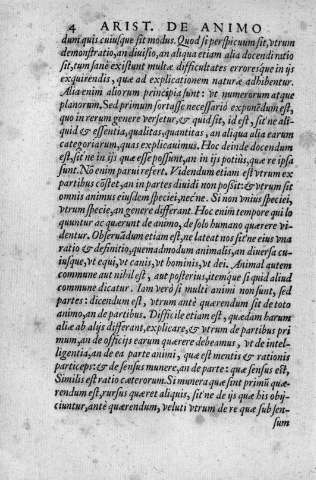 4 ARIST. DE ANIMO
dum quis cuiusque sit modus. Quod si perspicuum sit, vtrum
demonstratio, an diuisio, an aliqua etiam alia docendi ratio
sit, tum sanè existunt multæ difficultates erroresque in ijs
exquirendis, quæ ad explicationem naturæ adhibentur.
Alia enim aliorum principia sunt: vt numerorum atque
planorum. Sed primum fortasse necessariò exponẽdum est,
quo in rerum genere versetur, & quid sit, id est, sit ne ali-
quid & essentia, qualitas, quantitas, an aliqua alia earum
categoriarum, quas explicauimus. Hoc deinde docendum
est, sit ne in ijs quæ esse possunt, an in ijs potiùs, quæ re ipsa
sunt. Nõ enim parui refert. Videndum etiam est vtrum ex
partibus cõstet, an in partes diuidi non possit: & vtrum sit
omnis animus eiusdem speciei, nec ne. Si non vnius speciei,
vtrum specie, an genere differant. Hoc enim tempore qui lo
quuntur ac quærunt de animo, de solo humano quærere vi-
dentur. Obseruãdum etiam est, ne lateat nos sit'ne eius vna
ratio & definitio, quemadmodum animalis, an diuersa cu-
iusque, vt equi, vt canis, vt hominis, vt dei. Animal autem
commune aut nihil est, aut posterius, itemque si quid aliud
commune dicatur. Iam verò si multi animi non sunt, sed
partes: dicendum est, vtrum antè quærendum sit de toto
animo, an de partibus. Difficile etiam est, quædam harum
aliæ ab alijs differant, explicare, & vtrum de partibus pri
mum, an de officijs earum quærere debeamus, vt de intel-
ligentia, an de ea parte animi, quæ est mentis & rationis
particeps: & de sensus munere, an de parte: quæ sensus est,
Similis est ratio cæterorum. Si munera quæ sint primũ quæ-
rendum est, rursus quæret aliquis, sit'ne de ijs quæ his obij-
ciuntur, antè quærendum, veluti vtrum de re quæ sub sen-
sum